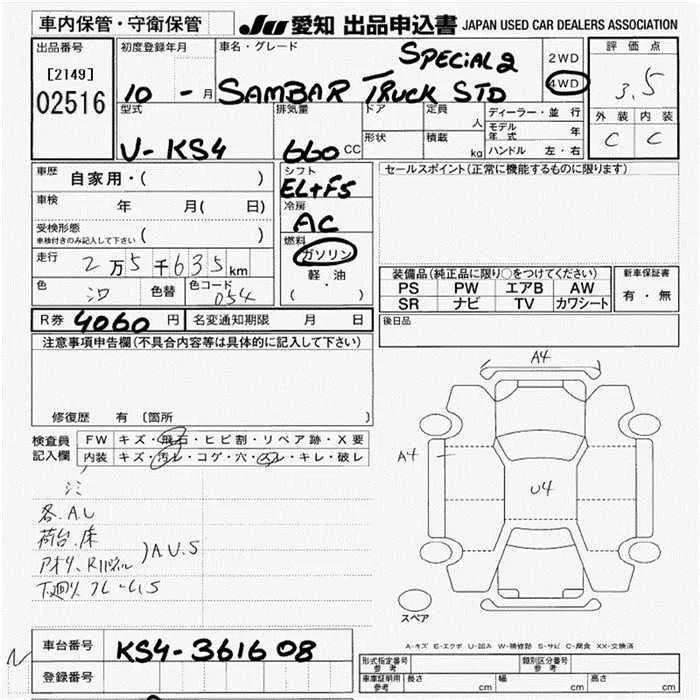 車内保管・守衛保管
JU 愛知 出品申込書 JAPAN USED CAR DEALERS ASSOCIATION
出品番号
[2149]
02516
初度登録年月
10 - 月
車名・グレード
SPECIAL2
SAMBAR TRUCK STD
2WD
4WD
評価点
3.5
外装 内装
C C
型式
V-KS4
排気量
660 CC
ドア
形状
定員 人
積載 kg
ディーラー・並行
モデル年式 年
ハンドル 左・右
車歴 自家用・( )
車検 年 月( 日)
受検形態
車検付きのみ記入して下さい ( )
走行 2万5千635km
色 色替 色コード 054
シフト
EL+F5
冷房
AC
燃料
ガソリン
軽油
( ・ )
セールスポイント(正常に機能するものに限ります)
装備品(純正品に限り○をつけてください)
PS PW エアB AW
SR ナビ TV カワシート
新車保証書
有・無
R券 4060 円 名変通知期限 月 日
後日品
注意事項申告欄(不具合内容等は具体的に記入して下さい)
修復歴 有 〔箇所
検査員
記入欄
FW キズ・飛石・ヒビ割・リペア跡・X要
内装 キズ・汚レ・コゲ・穴・スレ・キレ・破レ
各.A.U
荷台.床
アオリ、Rパネル ) A.U.S
A4
A4
U4
スペア
A-キズ E-エクボ U-凹み W-補修跡 S-サビ C-腐食 XX-交換済
車台番号 KS4-361608
登録番号
形式指定番号
参考
類別区分番号
参考
車庫証明用
参考
長さ cm 幅 cm 高さ cm